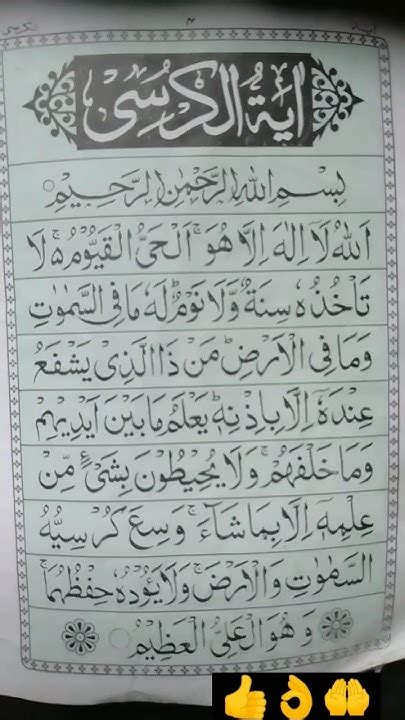 اٰیَةُ الْکُرْسِی
بِسْمِ اللهِ الرَّحْمٰنِ الرَّحِیْمِ
اَللهُ لَاۤ اِلٰهَ اِلَّا هُوَ ۚ اَلْحَیُّ الْقَیُّوْمُ ۵ۚ لَا
تَاْخُذُهٗ سِنَةٌ وَّلَا نَوْمٌ ؕ لَهٗ مَا فِی السَّمٰوٰتِ
وَمَا فِی الْاَرْضِ ؕ مَنْ ذَا الَّذِیْ یَشْفَعُ
عِنْدَهٗۤ اِلَّا بِاِذْنِهٖ ؕ یَعْلَمُ مَا بَیْنَ اَیْدِیْهِمْ
وَمَا خَلْفَهُمْ ۚ وَلَا یُحِیْطُوْنَ بِشَیْءٍ مِّنْ
عِلْمِهٖۤ اِلَّا بِمَا شَآءَ ۚ وَسِعَ کُرْسِیُّهُ
السَّمٰوٰتِ وَالْاَرْضَ ۚ وَلَا یَـُٔوْدُهٗ حِفْظُهُمَا ۚ
وَهُوَ الْعَلِیُّ الْعَظِیْمُ